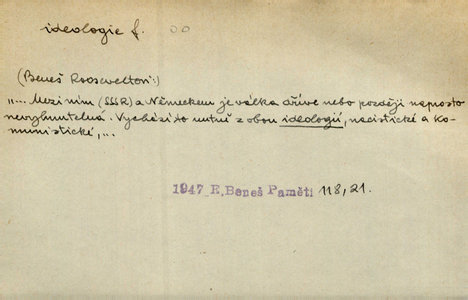 ideologie f.
(Beneš Rooseveltovi:)
„... Mezi ním (SSSR) a Německem je válka dříve nebo později naprosto
nevyhnutelná. Vychází to nutně z obou ideologií, nacistické a ko-
munistické,...
1947 E. Beneš Paměti 118,21.